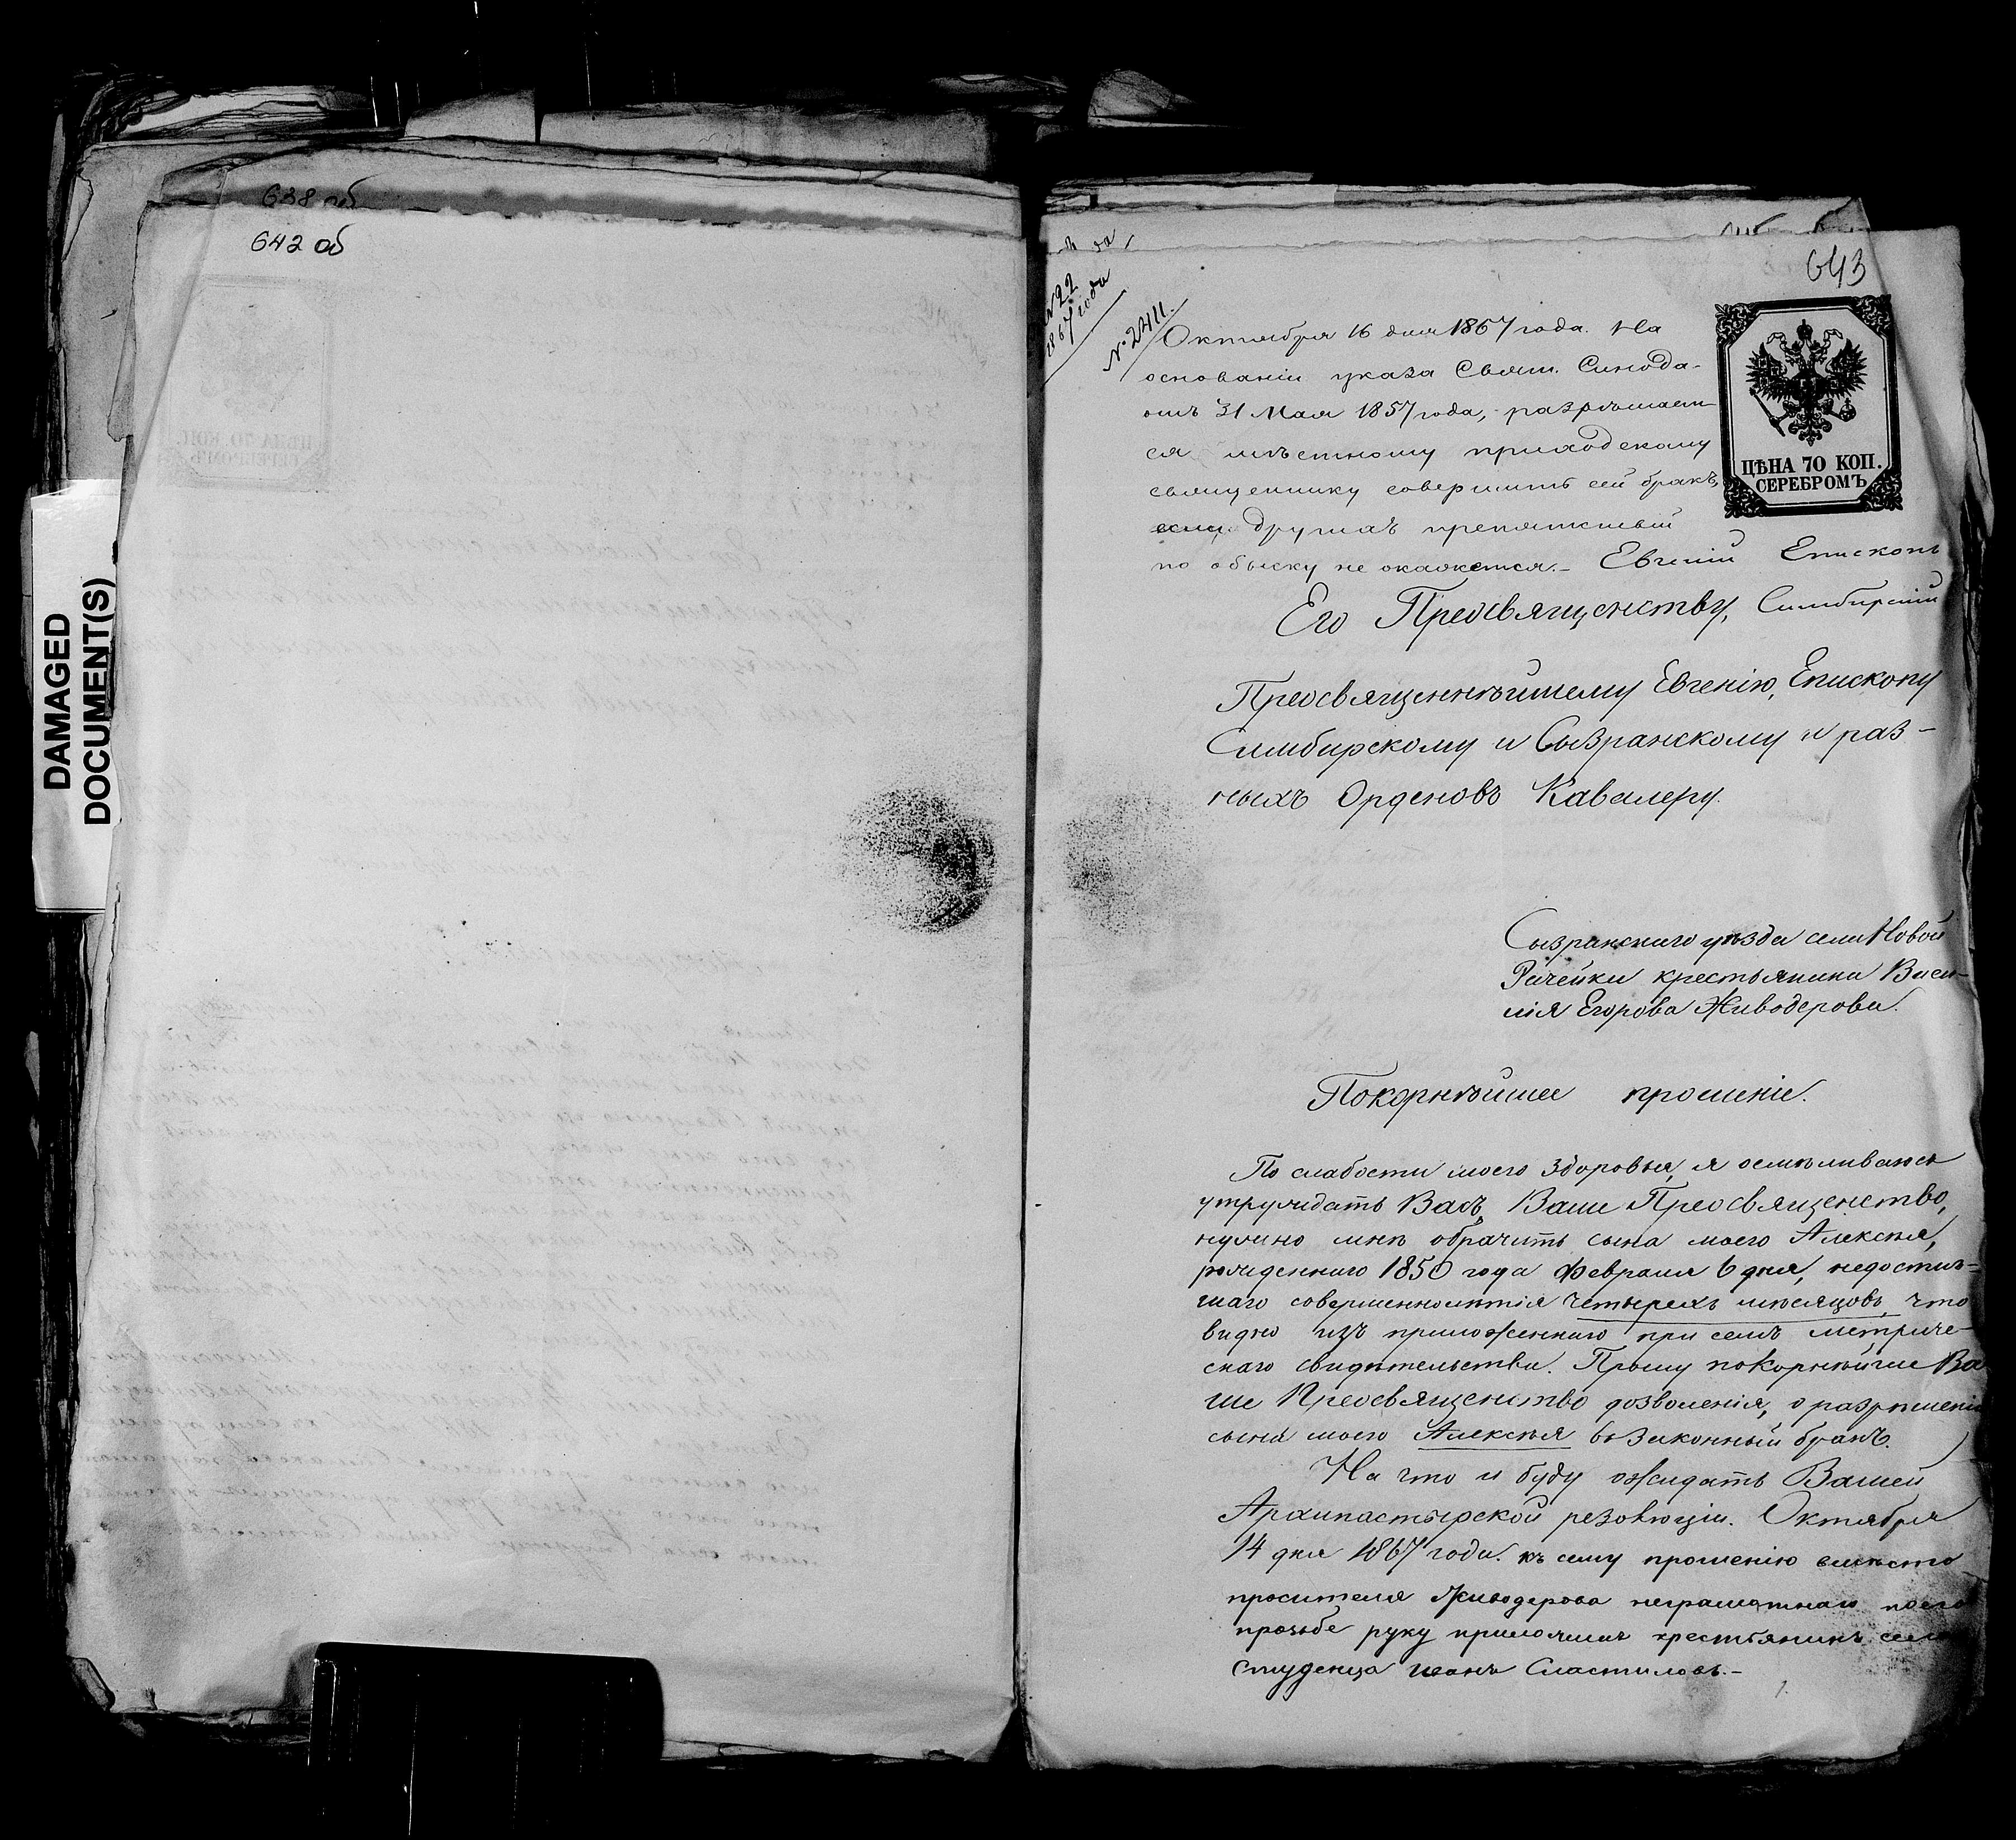 DAMAGED
DOCUMENT(S)
638 об
642 об
643
№ 22
1867 года
№ 2411.
Октября 16 дня 1867 года. На
основаніи указа Свят. Синода
отъ 31 Мая 1857 года, разрѣшает-
ся мѣстному приходскому
священнику совершить сей бракъ,
если другихъ препятствій
по обыску не окажется. – Евгеній Епископъ
Симбирскій
ЦѢНА 70 КОП.
СЕРЕБРОМЪ
Его Преосвященству,
Преосвященнѣйшему Евгенію, Епископу
Симбирскому и Сызранскому и раз-
ныхъ Орденовъ Кавалеру.
Сызранскаго уѣзда села Новой
Рачейки крестьянина Васи-
лія Егорова Живодерова.
Покорнѣйшее прошеніе.
По слабости моего здоровья, я осмѣливаюсь
утруждать Васъ, Ваше Преосвященство,
нужно мнѣ обрачить сына моего Алексѣя,
рожденнаго 1850 года Февраля 6 дня, недостиг-
шаго совершеннолѣтія четырехъ мѣсяцовъ, что
видно изъ приложеннаго при семъ метриче-
скаго свидѣтельства. Прошу покорнѣйше Ва
ше Преосвященство дозволенія, о разрѣшеніи
сына моего Алексѣя въ законный бракъ.
На что и буду ожидать Вашей
Архипастырской резолюціи. Октября
14 дня 1867 года. къ сему прошенію вмѣсто
просителя Живодерова неграматнаго поего
прозьбе руку приложилъ крестьянинъ села
Студенца Иванъ Сластиловъ. –